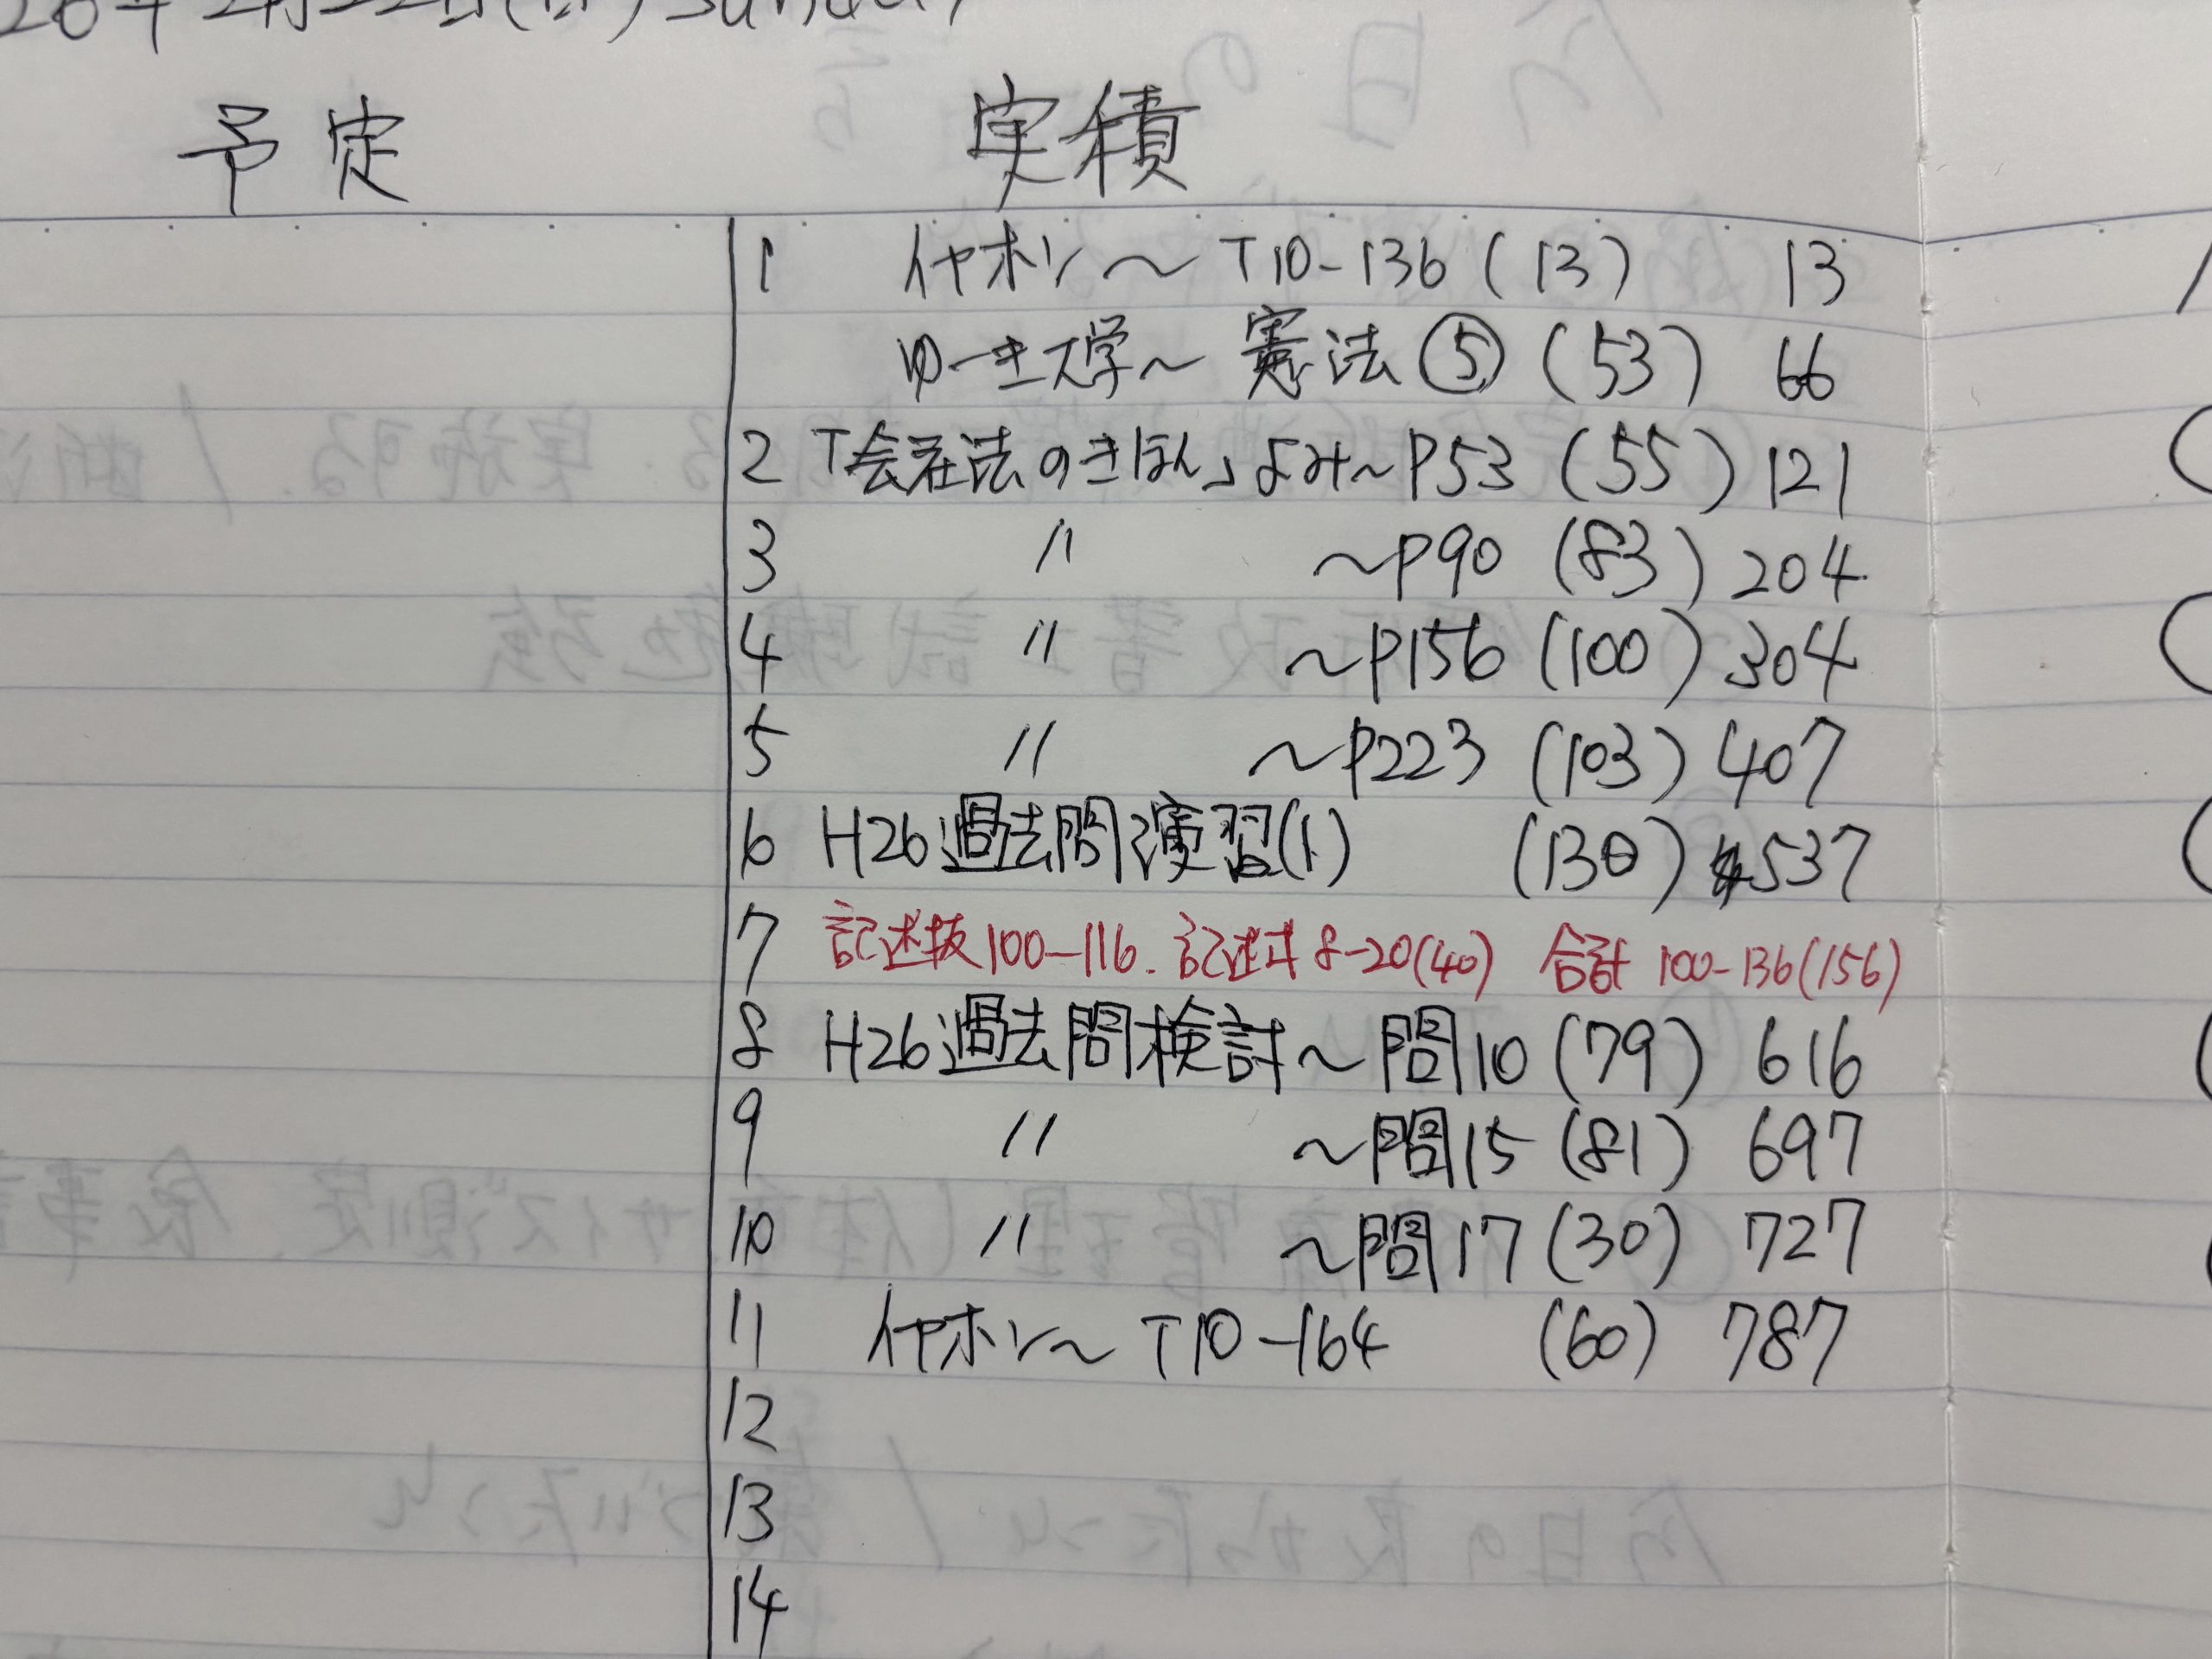 26年2月22日(日) Sunday
予定 実積
1 イヤホン～T10-136(13) 13
ゆーき大学～憲法⑤(53) 66
2 「会社法のきほん」よみ～P53(55) 121
3 〃 ～P90(83) 204
4 〃 ～P156(100) 304
5 〃 ～P223(103) 407
6 H26過去問演習(1) (130) 537
7 記述抜100-116. 記述斗8-20(40) 合計100-136(156)
8 H26過去問検討～問10(79) 616
9 〃 ～問15(81) 697
10 〃 ～問17(30) 727
11 イヤホン～T10-164 (60) 787
12
13
14